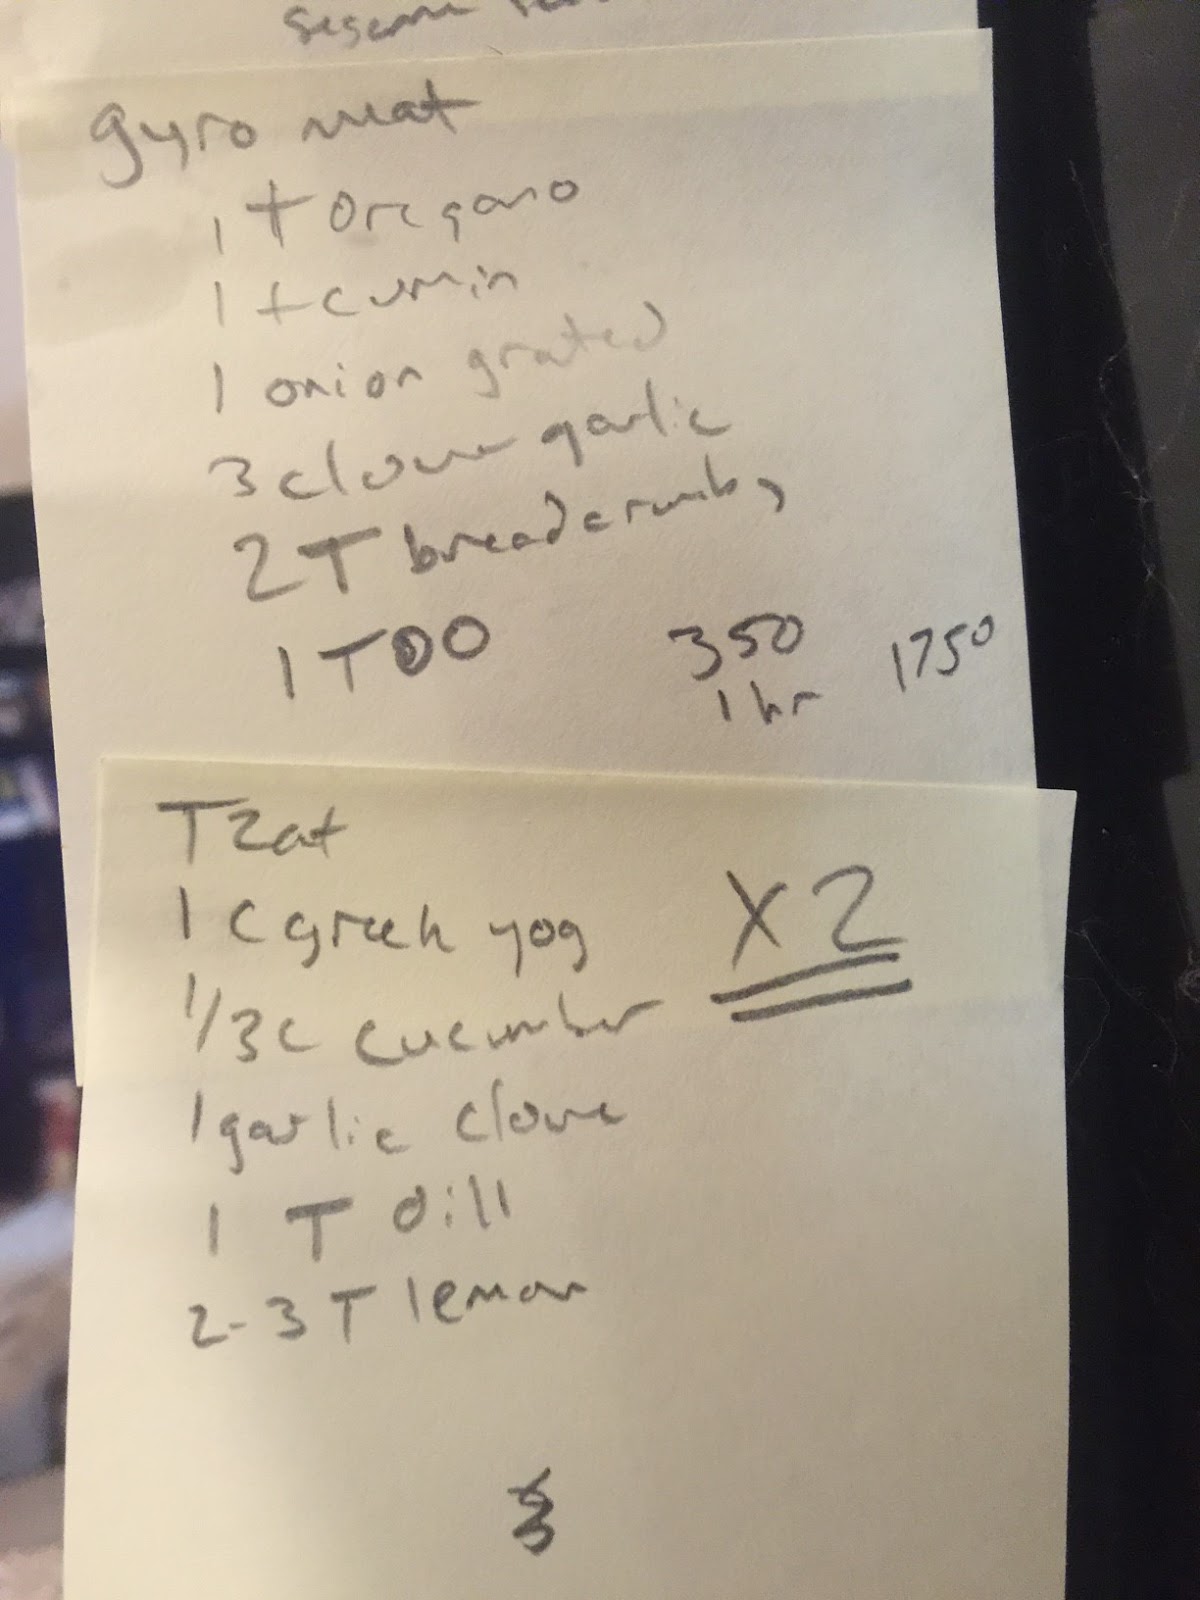 Sesame
gyro meat
1 t oregano
1 t cumin
1 onion grated
3 clove garlic
2 T breadcrumbs
1 T OO
350
1 hr
1750
Tzat
X2
1 c greek yog
1/3 c cucumber
1 garlic clove
1 T dill
2-3 T lemon